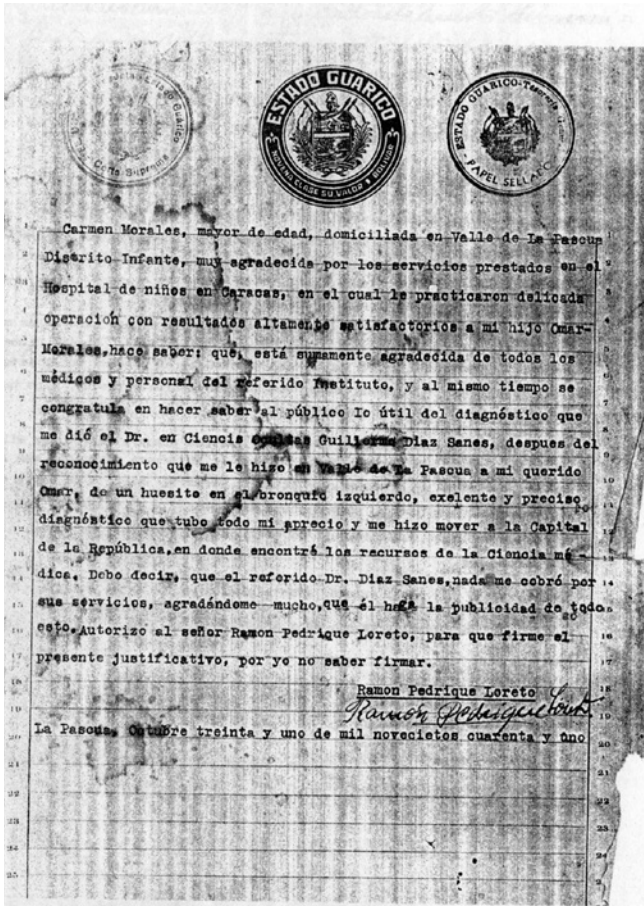 Estado Guárico
Corte Suprema
ESTADO GUARICO
NOVENA CLASE SU VALOR 1 BOLIVAR
ESTADO GUARICO-Tesorería
PAPEL SELLADO
Carmen Morales, mayor de edad, domiciliada en Valle de La Pascua
Distrito Infante, muy agradecida por los servicios prestados en el
Hospital de niños en Caracas, en el cual le practicaron delicada
operación con resultados altamente satisfactorios a mi hijo Omar-
Morales,hace saber: que, está sumamente agradecida de todos los
médicos y personal del referido Instituto, y al mismo tiempo se
congratula en hacer saber al público lo útil del diagnóstico que
me dió el Dr. en Ciencis Ocultas Guillermo Diaz Sanes, despues del
reconocimiento que me le hizo en Valle de La Pascua a mi querido
Omar, de un huesito en el bronquio izquierdo, exelente y preciso
diagnóstico que tubo todo mi aprecio y me hizo mover a la Capital
de la República,en donde encontré los recursos de la Ciencia mé -
dica. Debo decir, que el referido Dr. Diaz Sanes,nada me cobró por
sus servicios, agradándome mucho,que él haga la publicidad de todo
esto.Autorizo al señor Ramon Pedrique Loreto, para que firme el
presente justificativo, por yo no saber firmar.
Ramon Pedrique Loreto
Ramón Pedrique Loreto
La Pascua, Octubre treinta y uno de mil novecietos cuarenta y uno